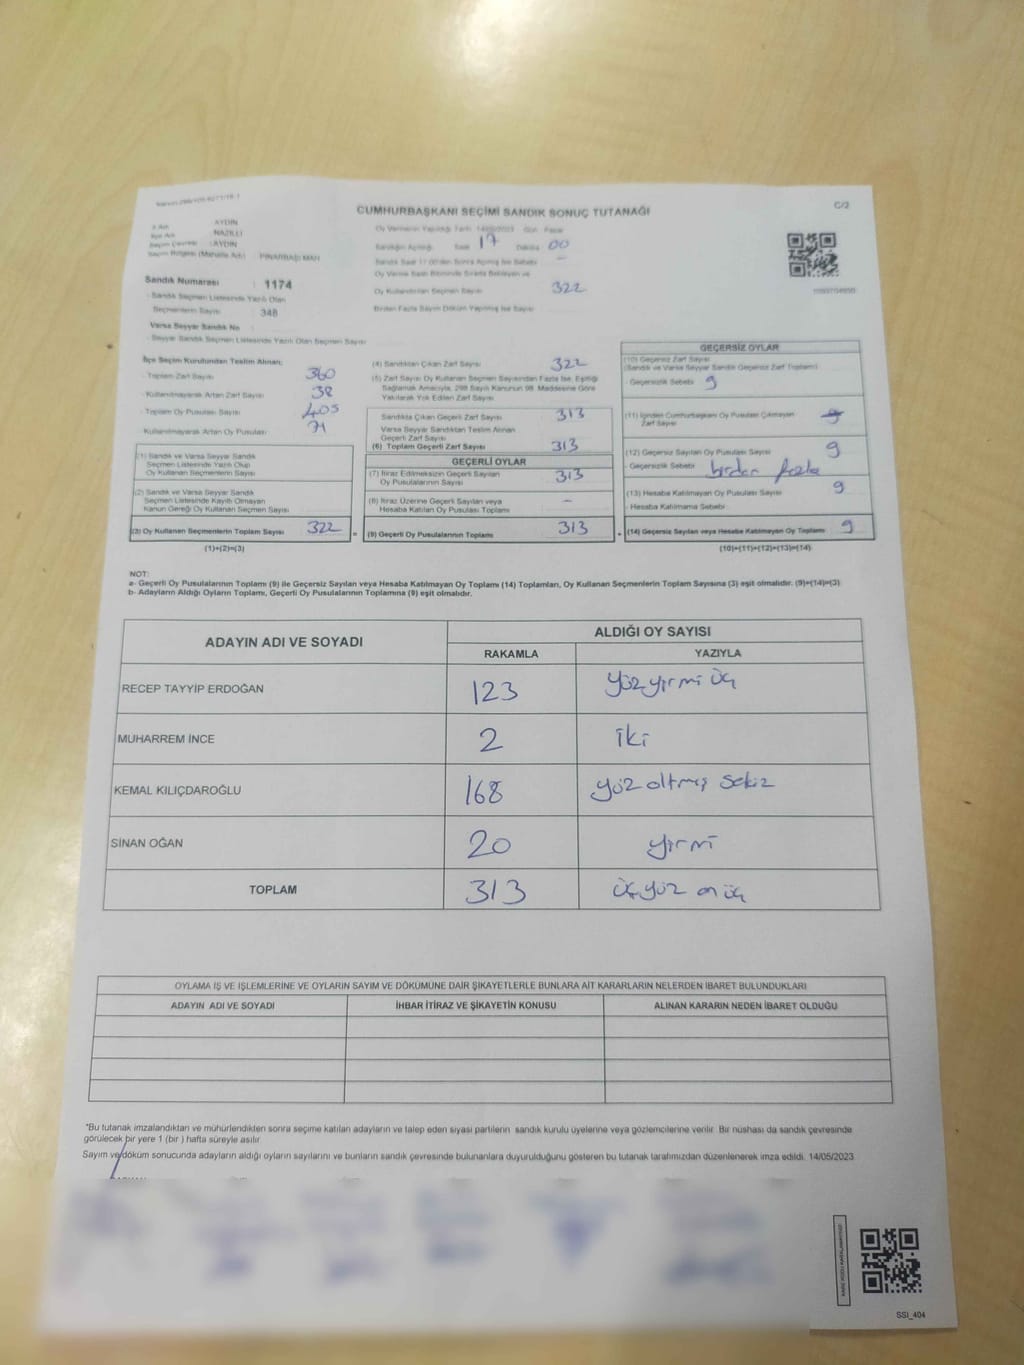 CUMHURBAŞKANI SEÇİMİ SANDIK SONUÇ TUTANAĞI
C/2
AYDIN
NAZİLLİ
AYDIN
PINARBAŞI MAH
Oy Vermenin Yapıldığı Tarih 14/05/2023 Gün Pazar
Sandığın Açıldığı Saat 17 Dakika 00
Oy Kullandırılan Seçmen Sayısı 322
Sandık Numarası : 1174
- Sandık Seçmen Listesinde Yazılı Olan
Seçmenlerin Sayısı 348
Varsa Seyyar Sandık No
- Seyyar Sandık Seçmen Listesinde Yazılı Olan Seçmen Sayısı
İlçe Seçim Kurulundan Teslim Alınan;
- Toplam Zarf Sayısı 360
- Kullanılmayarak Artan Zarf Sayısı 38
- Toplam Oy Pusulası Sayısı 405
- Kullanılmayarak Artan Oy Pusulası 71
(1) Sandık ve Varsa Seyyar Sandık
Seçmen Listesinde Yazılı Olup
Oy Kullanan Seçmenlerin Sayısı
(2) Sandık ve Varsa Seyyar Sandık
Seçmen Listesinde Kayıtlı Olmayan
Kanun Gereği Oy Kullanan Seçmen Sayısı
(3) Oy Kullanan Seçmenlerin Toplam Sayısı 322
(1)+(2)=(3)
(4) Sandıktan Çıkan Zarf Sayısı 322
(5) Zarf Sayısı Oy Kullanan Seçmen Sayısından Fazla İse, Eşitliği
Sağlamak Amacıyla, 298 Sayılı Kanunun 98. Maddesine Göre
Yakılarak Yok Edilen Zarf Sayısı
Sandıkta Çıkan Geçerli Zarf Sayısı 313
Varsa Seyyar Sandıktan Teslim Alınan
Geçerli Zarf Sayısı
(6) Toplam Geçerli Zarf Sayısı 313
GEÇERLİ OYLAR
(7) İtiraz Edilmeksizin Geçerli Sayılan
Oy Pusulalarının Sayısı 313
(8) İtiraz Üzerine Geçerli Sayılan veya
Hesaba Katılan Oy Pusulası Toplamı –
(9) Geçerli Oy Pusulalarının Toplamı 313
GEÇERSİZ OYLAR
(10) Geçersiz Zarf Sayısı
(Sandık ve Varsa Seyyar Sandık Geçersiz Zarf Toplamı)
- Geçersizlik Sebebi 9
(11) İçinden Cumhurbaşkanı Oy Pusulası Çıkmayan
Zarf Sayısı
(12) Geçersiz Sayılan Oy Pusulası Sayısı 9
- Geçersizlik Sebebi birden fazla
(13) Hesaba Katılmayan Oy Pusulası Sayısı 9
- Hesaba Katılmama Sebebi
(14) Geçersiz Sayılan veya Hesaba Katılmayan Oy Toplamı 9
(10)+(11)+(12)+(13)=(14)
NOT:
a- Geçerli Oy Pusulalarının Toplamı (9) ile Geçersiz Sayılan veya Hesaba Katılmayan Oy Toplamı (14) Toplamları, Oy Kullanan Seçmenlerin Toplam Sayısına (3) eşit olmalıdır. (9)+(14)=(3)
b- Adayların Aldığı Oyların Toplamı, Geçerli Oy Pusulalarının Toplamına (9) eşit olmalıdır.
ADAYIN ADI VE SOYADI ALDIĞI OY SAYISI
RAKAMLA YAZIYLA
RECEP TAYYİP ERDOĞAN 123 yüz yirmi üç
MUHARREM İNCE 2 iki
KEMAL KILIÇDAROĞLU 168 yüz altmış sekiz
SİNAN OĞAN 20 yirmi
TOPLAM 313 üçyüz on üç
OYLAMA İŞ VE İŞLEMLERİNE VE OYLARIN SAYIM VE DÖKÜMÜNE DAİR ŞİKAYETLERLE BUNLARA AİT KARARLARIN NELERDEN İBARET BULUNDUKLARI
ADAYIN ADI VE SOYADI İHBAR İTİRAZ VE ŞİKAYETİN KONUSU ALINAN KARARIN NEDEN İBARET OLDUĞU
*Bu tutanak imzalandıktan ve mühürlendikten sonra seçime katılan adayların ve talep eden siyasi partilerin sandık kurulu üyelerine veya gözlemcilerine verilir. Bir nüshası da sandık çevresinde
görülecek bir yere 1 (bir ) hafta süreyle asılır.
Sayım ve döküm sonucunda adayların aldığı oyların sayılarını ve bunların sandık çevresinde bulunanlara duyurulduğunu gösteren bu tutanak tarafımızdan düzenlenerek imza edildi. 14/05/2023
SSI_404